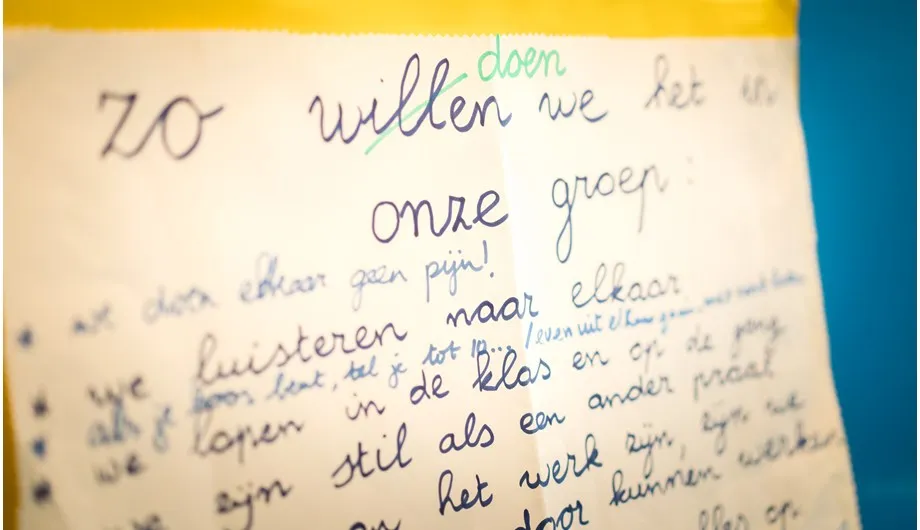 doen
zo willen we het in
onze groep:
* we doen elkaar geen pijn!
* we luisteren naar elkaar
* als je boos bent, tel je tot 10... / even uit elkaar gaan
* we lopen in de klas en op de gang
* we zijn stil als een ander praat
het werk zijn, zijn we
door kunnen werken
alles op